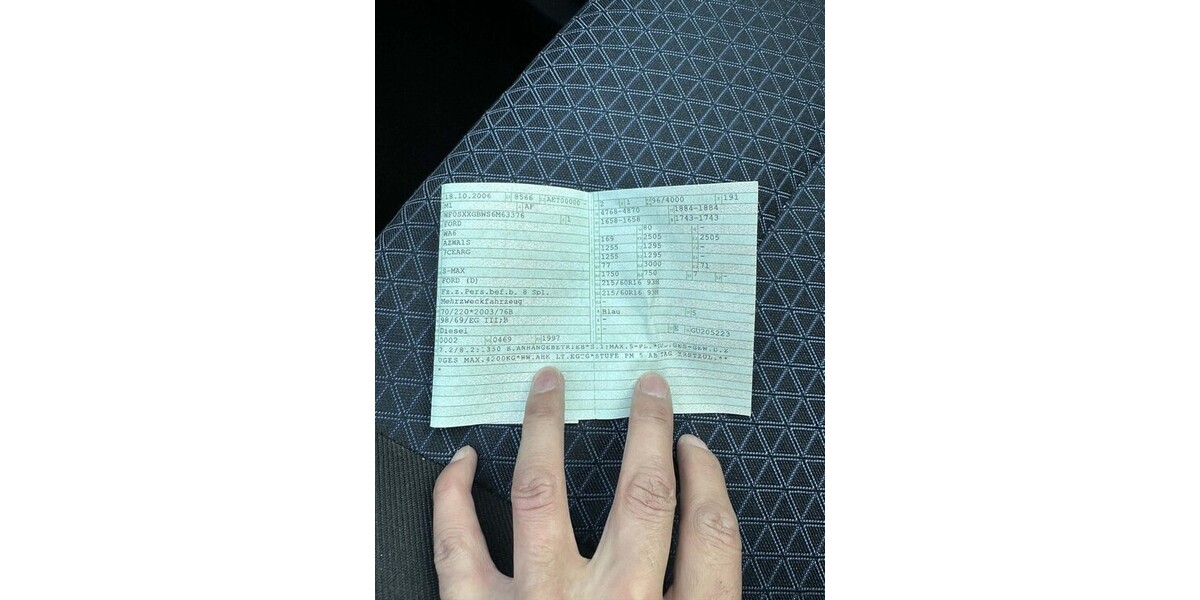 18.10.2006 8566 AET00000
M1 AF
WF0SXXGBWS6M63376 1
FORD
WA6
AZWA1S
7CEARG
S-MAX
FORD (D)
Fz.z.Pers.bef.b. 8 Spl.
Mehrzweckfahrzeug
70/220*2003/76B
98/69/EG III;B
Diesel
0002 0469 1997
2 1 96/4000 191
4768-4870 1884-1884
1658-1658 1743-1743
80 -
169 2505 2505
1255 1295 -
1255 1295 -
77 3000 71
1750 750 7 -
215/60R16 93H
215/60R16 93H
-
Blau 5
-
- E GU205223
7.2/8.2: B.ANHÄNGEBETRIEB*S.1:MAX.S-PL.
DGES MAX.4200KG*WW.AHK LT.EGTG*STUFE PM 5 AB TAG ERSTZUL.**
*